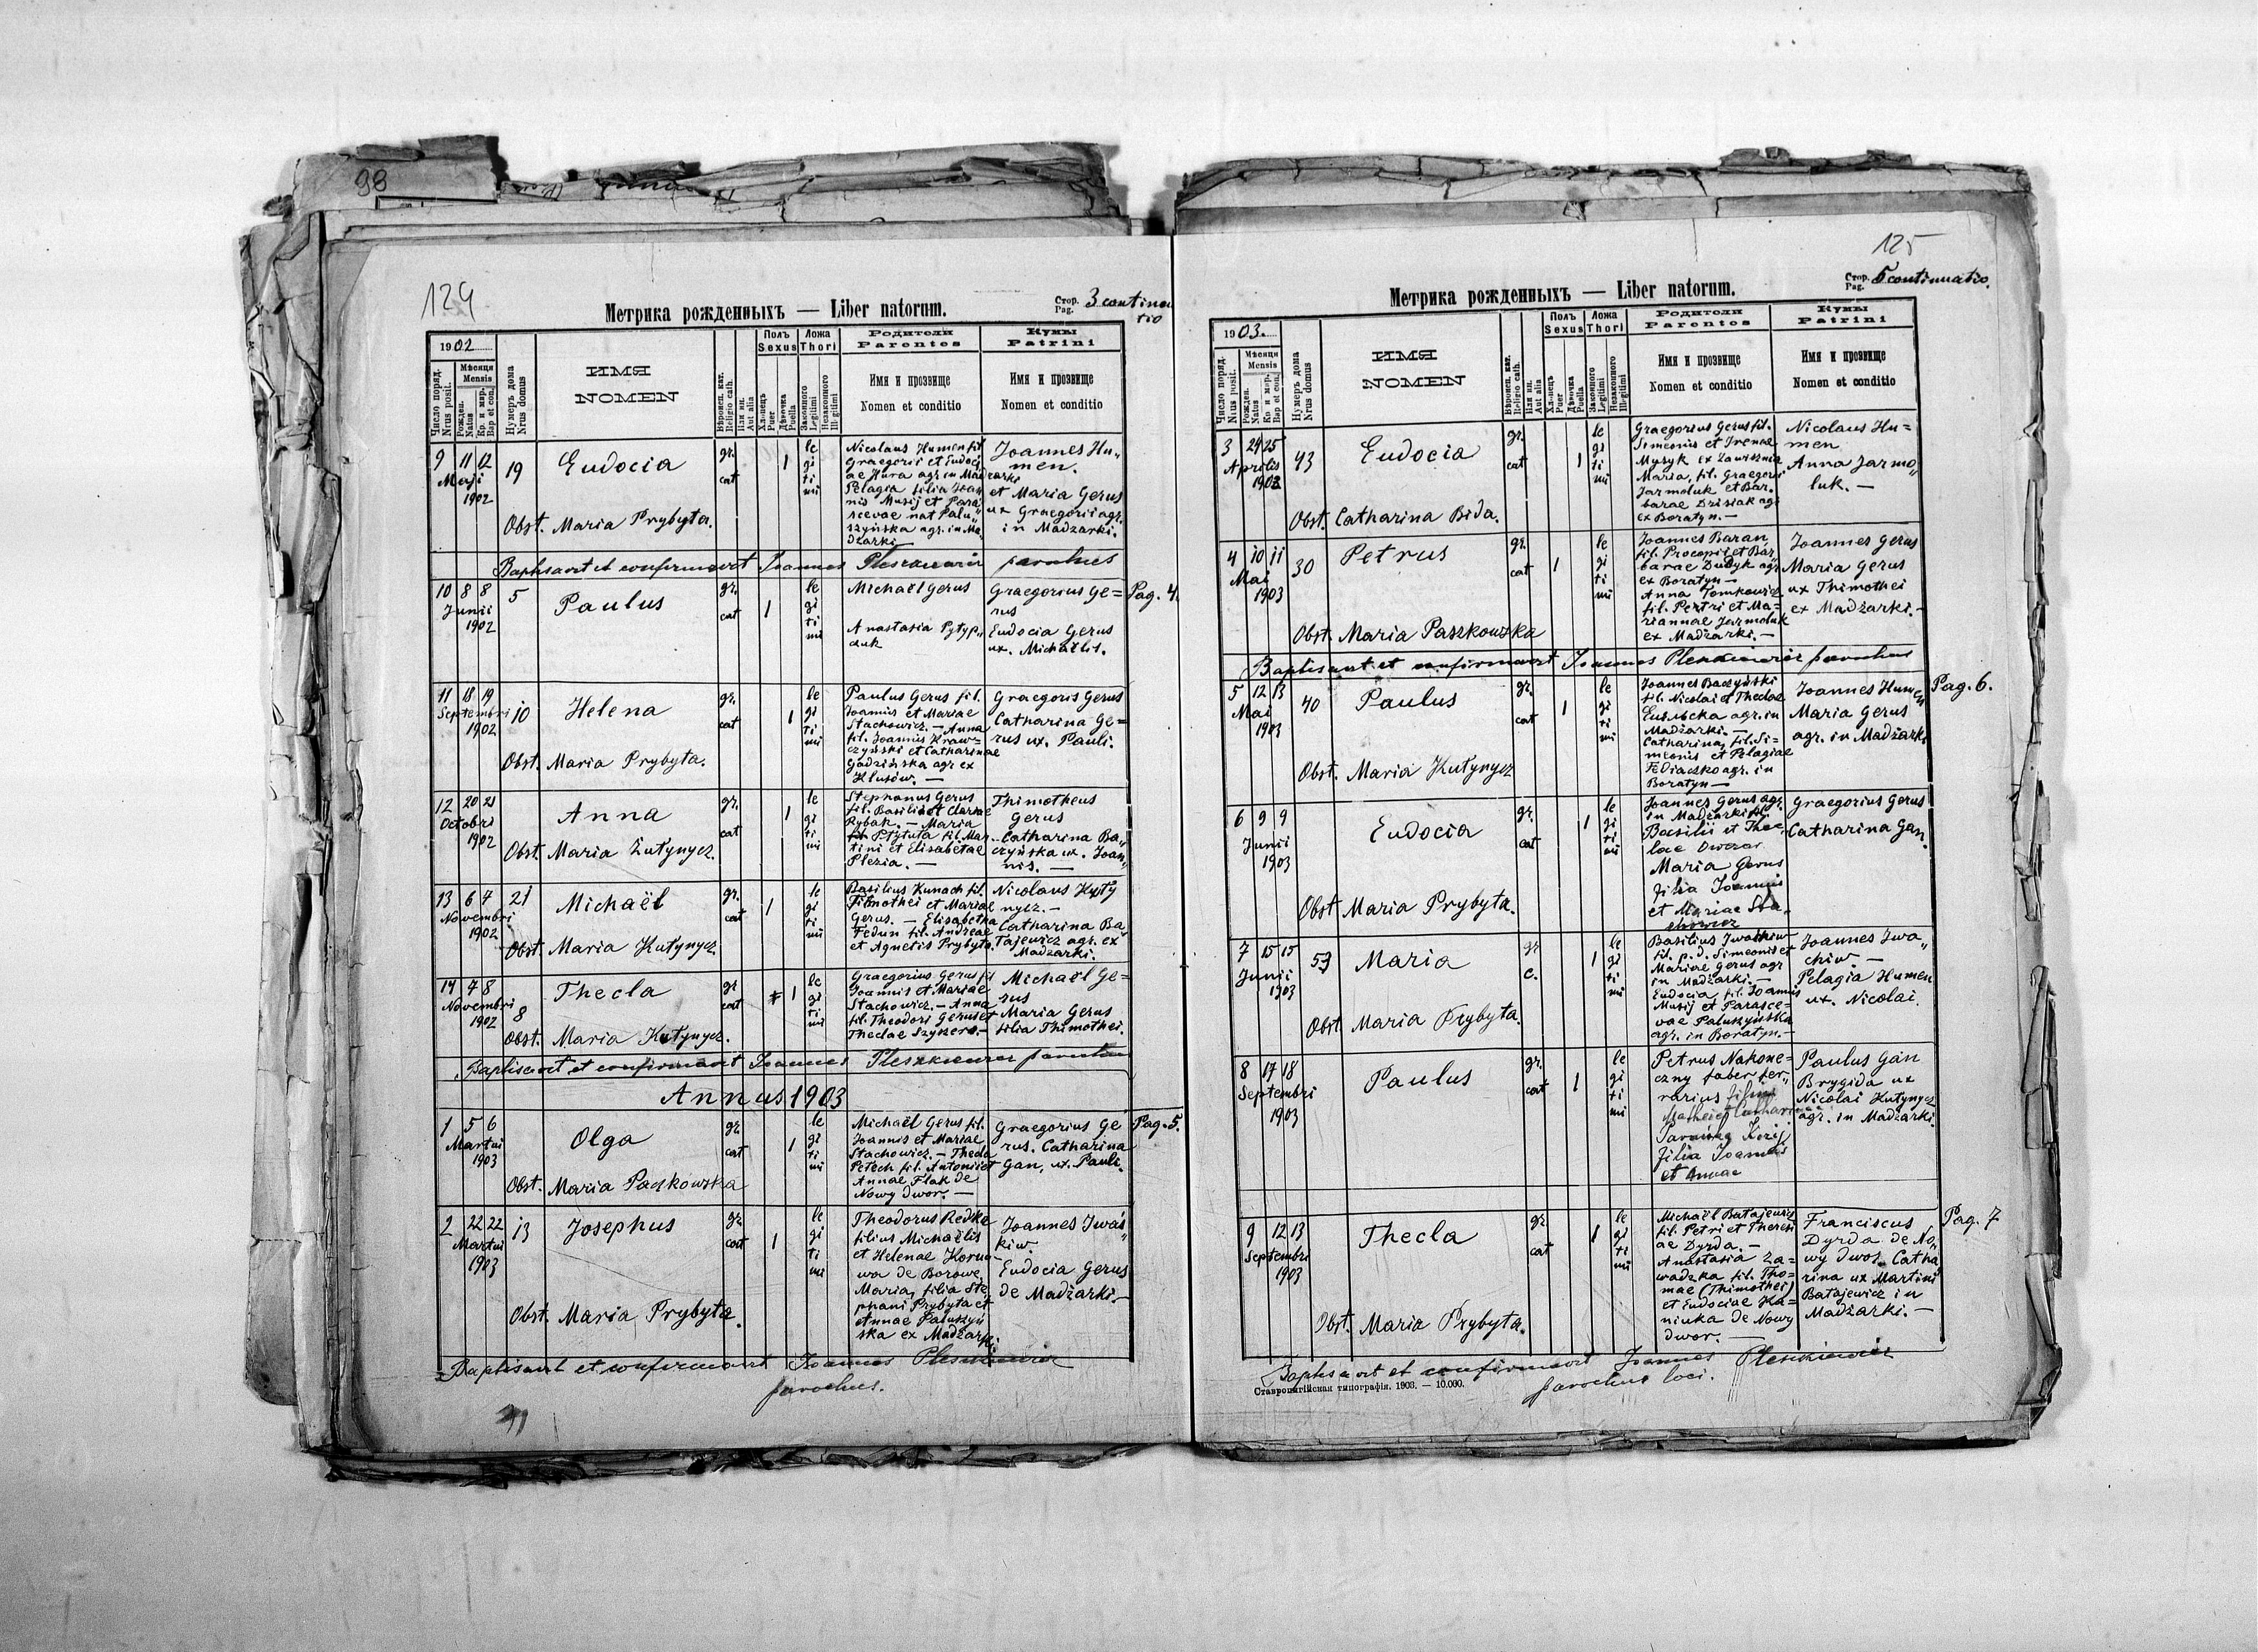 98
124
Метрика рожденныхъ — Liber natorum.
Стор. Pag. 3 continuatio
1902
Число поряд. Nrus posit.
Мѣсяця Mensis
Рожден. Natus
Кр. и мѵр. Bap et con.
Нумеръ дома Nrus domus
ИМЯ
NOMEN
Вѣроисп. кат. Religio cath.
Или ин. Aut alia
Полъ Sexus
Хлопецъ Puer
Дѣвочка Puella
Ложа Thori
Законного Legitimi
Незаконного Illegitimi
Родители
Parentes
Имя и прозвище
Nomen et conditio
Кумы
Patrini
Имя и прозвище
Nomen et conditio
9 11 12
Maji
1902
19
Eudocia
Obst. Maria Prybyta.
gr.
cat
1
le
gi
ti
mi
Nicolaus Humen fil
Graegorii et Eudoci
ae Hura agr. in Madzarki
Pelagia filia Joan
nis Musij et Para
scevae nat Palu„
szyńska agr. in Ma
dzarki
Joannes Hu„
men.
et Maria Gerus
ux Graegorii agr.
in Madzarki.
Baptisavit et confirmavit Joannes Pleszkiewicz parochus
10 8 8
Junii
1902
5
Paulus
gr.
cat
1
le
gi
ti
mi
Michaël Gerus
Anastasia Pytyp„
cluk
Graegorius Ge=
rus
Eudocia Gerus
ux. Michaëlis.
Pag. 4.
11 18 19
Septembri
1902
10
Helena
Obst. Maria Prybyta.
gr.
cat
1
le
gi
ti
mi
Paulus Gerus fil.
Joannis et Mariae
Stachowicz. — Anna
fil. Joannis Kraw=
czyński et Catharinae
Gadzińska agr ex
Klusów. —
Graegoris Gerus
Catharina Ge=
rus ux. Pauli.
12 20 21
Octobri
1902
Anna
Obst. Maria Kutynycz.
gr.
cat
1
le
gi
ti
mi
Stephanus Gerus
fil. Basilii et Clarae
Rybak. — Maria
Ptytuta fil. Mar
tini et Elisabetae
Plezia. —
Thimotheus
Gerus
Catharina Ba„
czyńska ux. Joan„
nis. —
13 6 7
Novembri
1902
21
Michaël
Obst. Maria Kutynycz.
gr.
cat
1
le
gi
ti
mi
Basilius Kunach fil.
Timothei et Mariae
Gerus. — Elisabetha
Fedun fil. Andreae
et Agnetis Prybyta.
Nicolaus Kuty
nycz. —
Catharina Ba„
tajewicz agr. ex
Madzarki.
14 7 8
Novembri
1902
8
Thecla
Obst. Maria Kutynycz.
gr
cat
1
le
gi
ti
mi
Graegorius Gerus fil
Joannis et Mariae
Stachowicz. — Anna
fil. Theodori Gerus et
Theclae Szyszero. —
Michaël Ge=
rus
Maria Gerus
filia Thimothei.
Baptisavit et confirmavit Joannes Pleszkiewicz parochus
Annus 1903
1 5 6
Martii
1903
Olga
Obst. Maria Paszkowska
gr.
cat
1
le
gi
ti
mi
Michaël Gerus fil.
Joannis et Mariae
Stachowicz. — Thecla
Petech fil. Antonii et
Annae Flak de
Nowy dwor. —
Graegorius Ge
rus. Catharina
Gan, ux. Pauli.
Pag. 5.
2 22 22
Martii
1903
13
Josephus
Obst. Maria Prybyta.
gr.
cat
1
le
gi
ti
mi
Theodorus Redke
filius Michaëlis
et Helenae Koruo
wa de Borowe,
Maria, filia Ste
phani Prybyta et
Annae Paluszyń
ska ex Madzarki.
Joannes Iwaś„
kiw.
Eudocia Gerus
de Madżarki. —
Baptisavit et confirmavit Joannes Pleszkiewicz
parochus.
125
Метрика рожденныхъ — Liber natorum.
Стор. Pag. 5 continuatio.
1903.
Число поряд. Nrus posit.
Мѣсяця Mensis
Рожден. Natus
Кр. и мѵр. Bap et con.
Нумеръ дома Nrus domus
ИМЯ
NOMEN
Вѣроисп. кат. Religio cath.
Или ин. Aut alia
Полъ Sexus
Хлопецъ Puer
Дѣвочка Puella
Ложа Thori
Законного Legitimi
Незаконного Illegitimi
Родители
Parentes
Имя и прозвище
Nomen et conditio
Кумы
Patrini
Имя и прозвище
Nomen et conditio
3 24 25
Aprilis
1903
43
Eudocia
Obst. Catharina Bida.
gr.
cat
1
le
gi
ti
mi
Graegorius Gerus fil.
Simeonis et Irenae
Musyk ex Zawisznia
Maria, fil. Graegorii
Jarmoluk et Bar.
barae Dzisiak agr
ex Boratyn. —
Nicolaus Hu=
men
Anna Jarmo„
luk. —
4 10 11
Mai
1903
30
Petrus
Obst. Maria Paszkowska
gr.
cat
1
le
gi
ti
mi
Joannes Baran
fil. Procopii et Bar
barae Dudyk agr
ex Boratyn —
Anna Tomkowicz
fil. Pertri et Ma=
riannae Jarmoluk
ex Madżarki. —
Joannes Gerus
Maria Gerus
ux Thimothei
ex Madżarki. —
Baptisavit et confirmavit Joannes Pleszkiewicz parochus
5 12 13
Mai
1903
40
Paulus
Obst. Maria Kutynycz
gr.
cat
1
le
gi
ti
mi
Joannes Baczyński
fil. Nicolai et Theclae
agr. in
Madżarki. —
Catharina, fil. Si=
meonis et Pelagiae
Fediaczko agr. in
Boratyn —
Joannes Humen
Maria Gerus
agr. in Madżarki
Pag. 6.
6 9 9
Junii
1903
Eudocia
Obst Maria Prybyta.
gr.
cat
1
le
gi
ti
mi
Joannes Gerus agr.
in Madżarki fil.
Basilii et Thec„
lae
Maria Gerus
filia Joannis
et Mariae Sta„
chowicz
Graegorius Gerus
Catharina Gan.
7 15 15
Junii
1903
53
Maria
Obst Maria Prybyta.
gr
c.
1
le
gi
ti
mi
Basilius Iwachiw
fil. p. d. Simeonis et
Mariae Gerus agr
in Madżarki. —
Eudocia, fil. Joannis
Musij et Parasce=
vae Paluszyńska
agr. in Boratyn. —
Joannes Iwa„
chiw. —
Pelagia Humen
ux. Nicolai.
8 17 18
Septembri
1903
Paulus
gr.
cat
1
le
gi
ti
mi
Petrus Nakone=
czny faber fer„
rarius filius
Mathei et Catharinae
filia Joannis
et Annae
Paulus Gan
Brygida ux
Nicolai Kutynycz
agr. in Madżarki.
9 12 13
Septembri
1903
Thecla
Obst. Maria Prybyta.
gr.
cat
1
le
gi
ti
mi
Michaël Batajewicz
fil. Petri et Theresi
ae Dyrda. —
Anastasia Za=
wadzka fil. Tho=
mae (Thimothei)
et Eudociae Ka=
niuka de Nowy
dwor. —
Franciscus
Dyrda de No„
wy dwor. Catha„
rina ux Martini
Batajewicz in
Madżarki. —
Pag. 7
Baptisavit et confirmavit Joannes Pleszkiewicz
parochus loci.
Ставропигійская типографія. 1903. — 10.000.